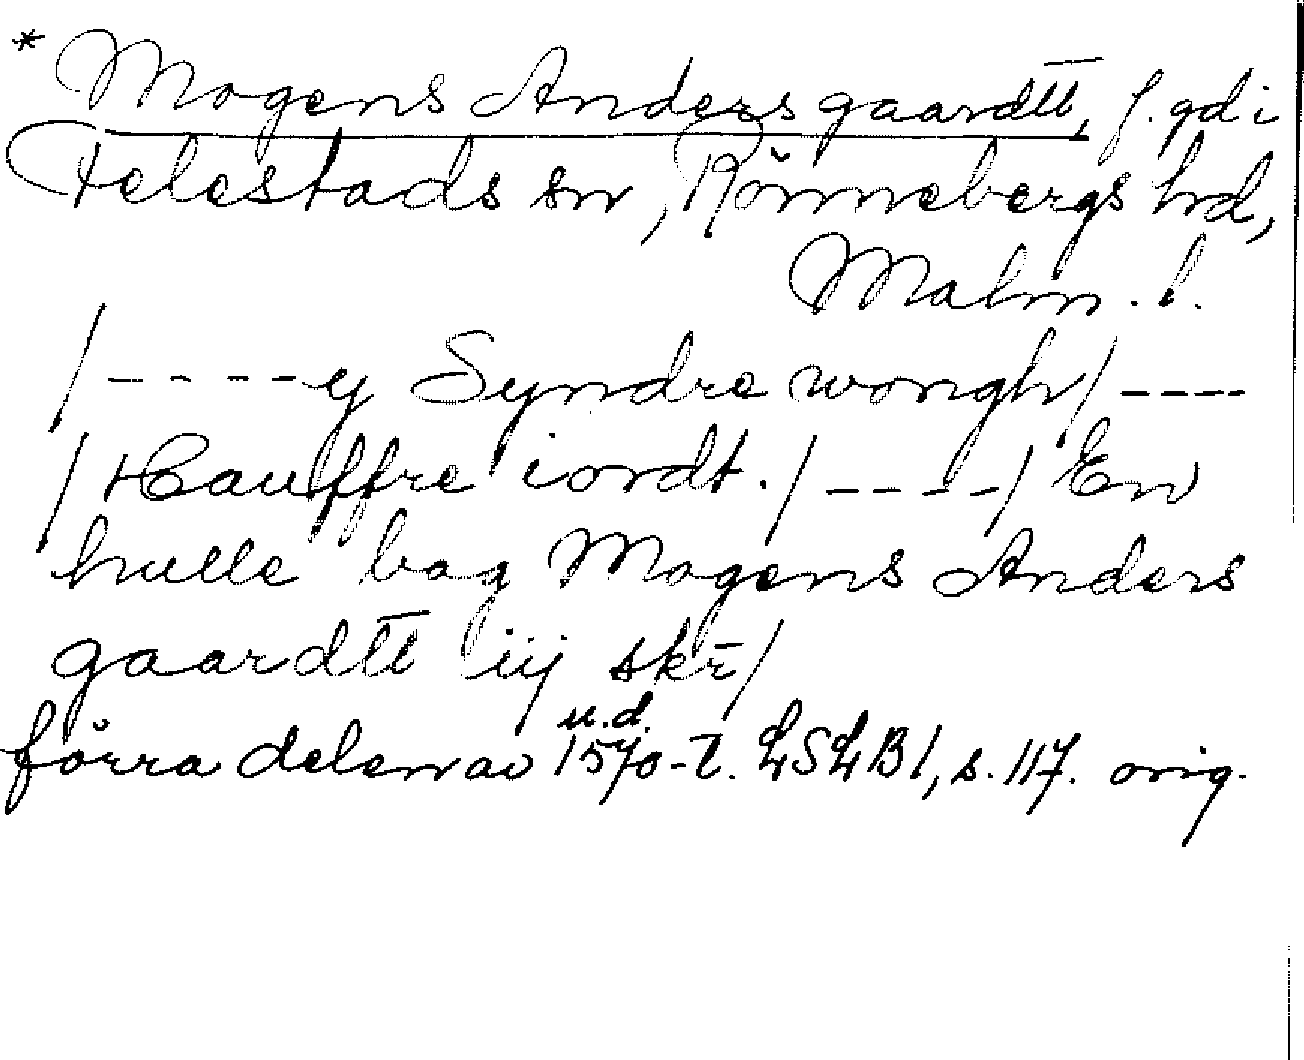 * Mogens Anders gaardtt, f. gd i
Felestads sn, Rönnebergs hd,
Malm. l.
/ - - - - y Syndre wongh / - - - -
/ Hauffre iordt. / - - - - / En
hulle bag Mogens Anders
gaardtt iij skr̄ /
u.d.
förra delen av 1570-t. LSLB 1, s. 117. orig.